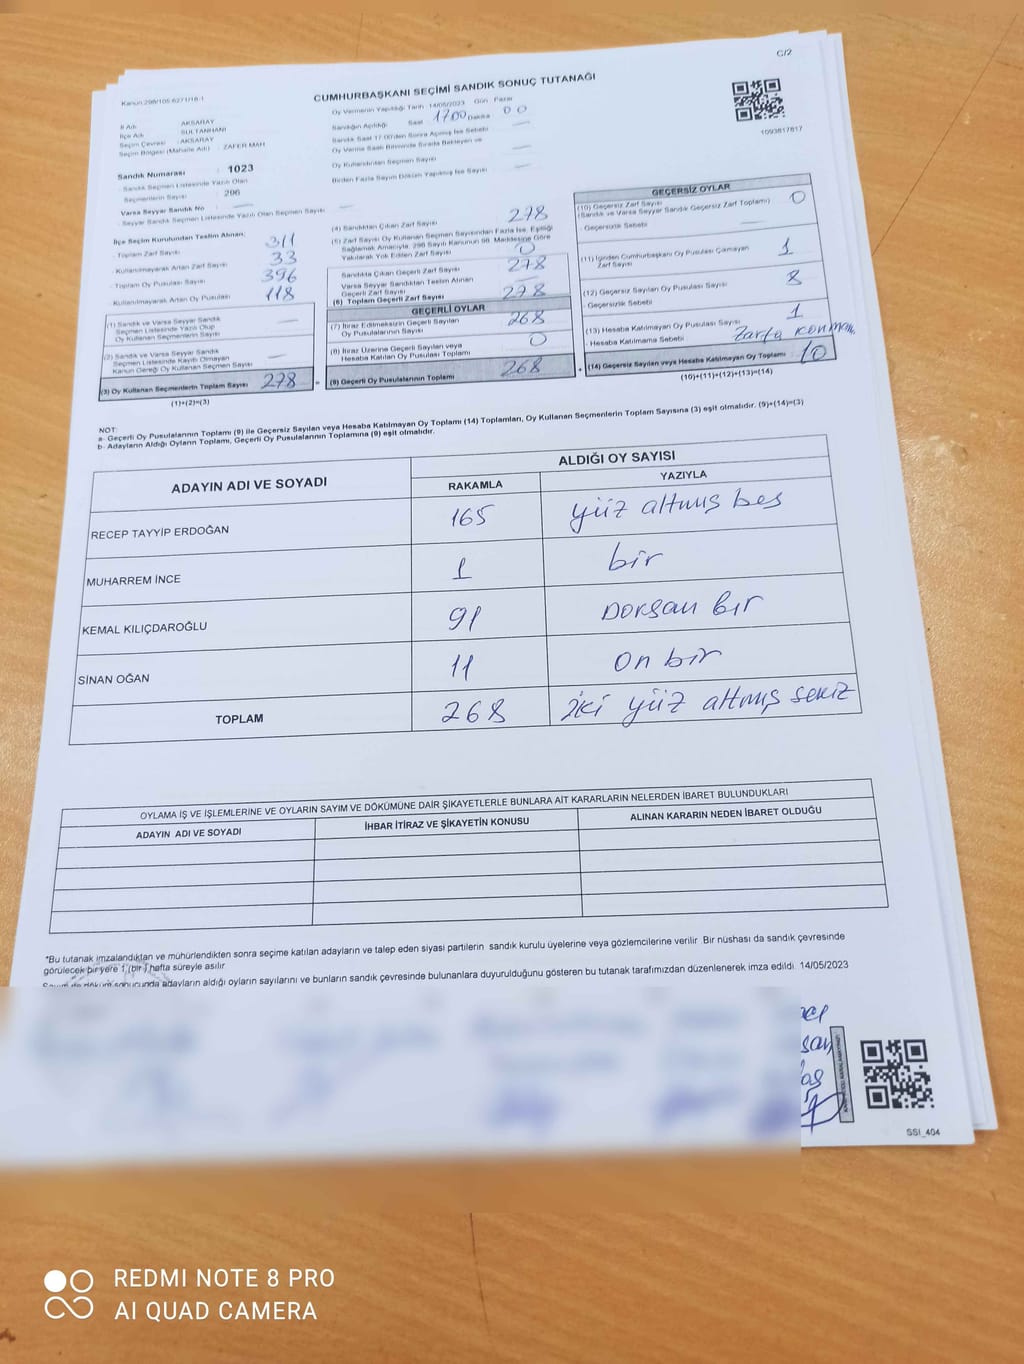 C/2
Kanun:298/105.6271/18-1
CUMHURBAŞKANI SEÇİMİ SANDIK SONUÇ TUTANAĞI
İl Adı : AKSARAY
İlçe Adı : SULTANHANI
Seçim Çevresi : AKSARAY
Seçim Bölgesi (Mahalle Adı) : ZAFER MAH
Sandık Numarası : 1023
Sandık Seçmen Listesinde Yazılı Olan
Seçmenlerin Sayısı : 296
Varsa Seyyar Sandık No
Seyyar Sandık Seçmen Listesinde Yazılı Olan Seçmen Sayısı
Oy Vermenin Yapıldığı Tarih 14/05/2023 Gün Pazar
Sandığın Açıldığı Saat 17.00 Dakika 00
Sandık Saat 17.00'den Sonra Açılmış İse Sebebi
Oy Verme Saati Bitiminde Sırada Bekleyen ve
Oy Kullandırılan Seçmen Sayısı
Birden Fazla Sayım Döküm Yapılmış İse Sayısı
1093817817
İlçe Seçim Kurulundan Teslim Alınan;
Toplam Zarf Sayısı 311
Kullanılmayarak Artan Zarf Sayısı 33
Toplam Oy Pusulası Sayısı 396
Kullanılmayarak Artan Oy Pusulası 118
(1) Sandık ve Varsa Seyyar Sandık
Seçmen Listesinde Yazılı Olup
Oy Kullanan Seçmenlerin Sayısı
(2) Sandık ve Varsa Seyyar Sandık
Seçmen Listesinde Kayıtlı Olmayan
Kanun Gereği Oy Kullanan Seçmen Sayısı
(3) Oy Kullanan Seçmenlerin Toplam Sayısı 278
(1)+(2)=(3)
(4) Sandıktan Çıkan Zarf Sayısı 278
(5) Zarf Sayısı Oy Kullanan Seçmen Sayısından Fazla İse, Eşitliği
Sağlamak Amacıyla, 298 Sayılı Kanunun 98. Maddesine Göre
Yakılarak Yok Edilen Zarf Sayısı 0
Sandıkta Çıkan Geçerli Zarf Sayısı 278
Varsa Seyyar Sandıktan Teslim Alınan
Geçerli Zarf Sayısı
(6) Toplam Geçerli Zarf Sayısı 278
GEÇERLİ OYLAR
(7) İtiraz Edilmeksizin Geçerli Sayılan
Oy Pusulalarının Sayısı 268
(8) İtiraz Üzerine Geçerli Sayılan veya
Hesaba Katılan Oy Pusulası Toplamı 0
(9) Geçerli Oy Pusulalarının Toplamı 268
GEÇERSİZ OYLAR
(10) Geçersiz Zarf Sayısı
(Sandık ve Varsa Seyyar Sandık Geçersiz Zarf Toplamı) 0
Geçersizlik Sebebi
(11) İçinden Cumhurbaşkanı Oy Pusulası Çıkmayan
Zarf Sayısı 1
(12) Geçersiz Sayılan Oy Pusulası Sayısı 8
Geçersizlik Sebebi
(13) Hesaba Katılmayan Oy Pusulası Sayısı 1
Hesaba Katılmama Sebebi Zarfa konmam.
(14) Geçersiz Sayılan veya Hesaba Katılmayan Oy Toplamı 10
(10)+(11)+(12)+(13)=(14)
NOT:
a- Geçerli Oy Pusulalarının Toplamı (9) ile Geçersiz Sayılan veya Hesaba Katılmayan Oy Toplamı (14) Toplamları, Oy Kullanan Seçmenlerin Toplam Sayısına (3) eşit olmalıdır. (9)+(14)=(3)
b- Adayların Aldığı Oyların Toplamı, Geçerli Oy Pusulalarının Toplamına (9) eşit olmalıdır.
ADAYIN ADI VE SOYADI
ALDIĞI OY SAYISI
RAKAMLA YAZIYLA
RECEP TAYYİP ERDOĞAN 165 yüz altmış beş
MUHARREM İNCE 1 bir
KEMAL KILIÇDAROĞLU 91 Doksan bir
SİNAN OĞAN 11 On bir
TOPLAM 268 iki yüz altmış sekiz
OYLAMA İŞ VE İŞLEMLERİNE VE OYLARIN SAYIM VE DÖKÜMÜNE DAİR ŞİKAYETLERLE BUNLARA AİT KARARLARIN NELERDEN İBARET BULUNDUKLARI
ADAYIN ADI VE SOYADI İHBAR İTİRAZ VE ŞİKAYETİN KONUSU ALINAN KARARIN NEDEN İBARET OLDUĞU
*Bu tutanak imzalandıktan ve mühürlendikten sonra seçime katılan adayların ve talep eden siyasi partilerin sandık kurulu üyelerine veya gözlemcilerine verilir. Bir nüshası da sandık çevresinde
görülecek bir yere 1 (bir) hafta süreyle asılır.
Sayım ve döküm sonucunda adayların aldığı oyların sayılarını ve bunların sandık çevresinde bulunanlara duyurulduğunu gösteren bu tutanak tarafımızdan düzenlenerek imza edildi. 14/05/2023
SSI_404
REDMI NOTE 8 PRO
AI QUAD CAMERA